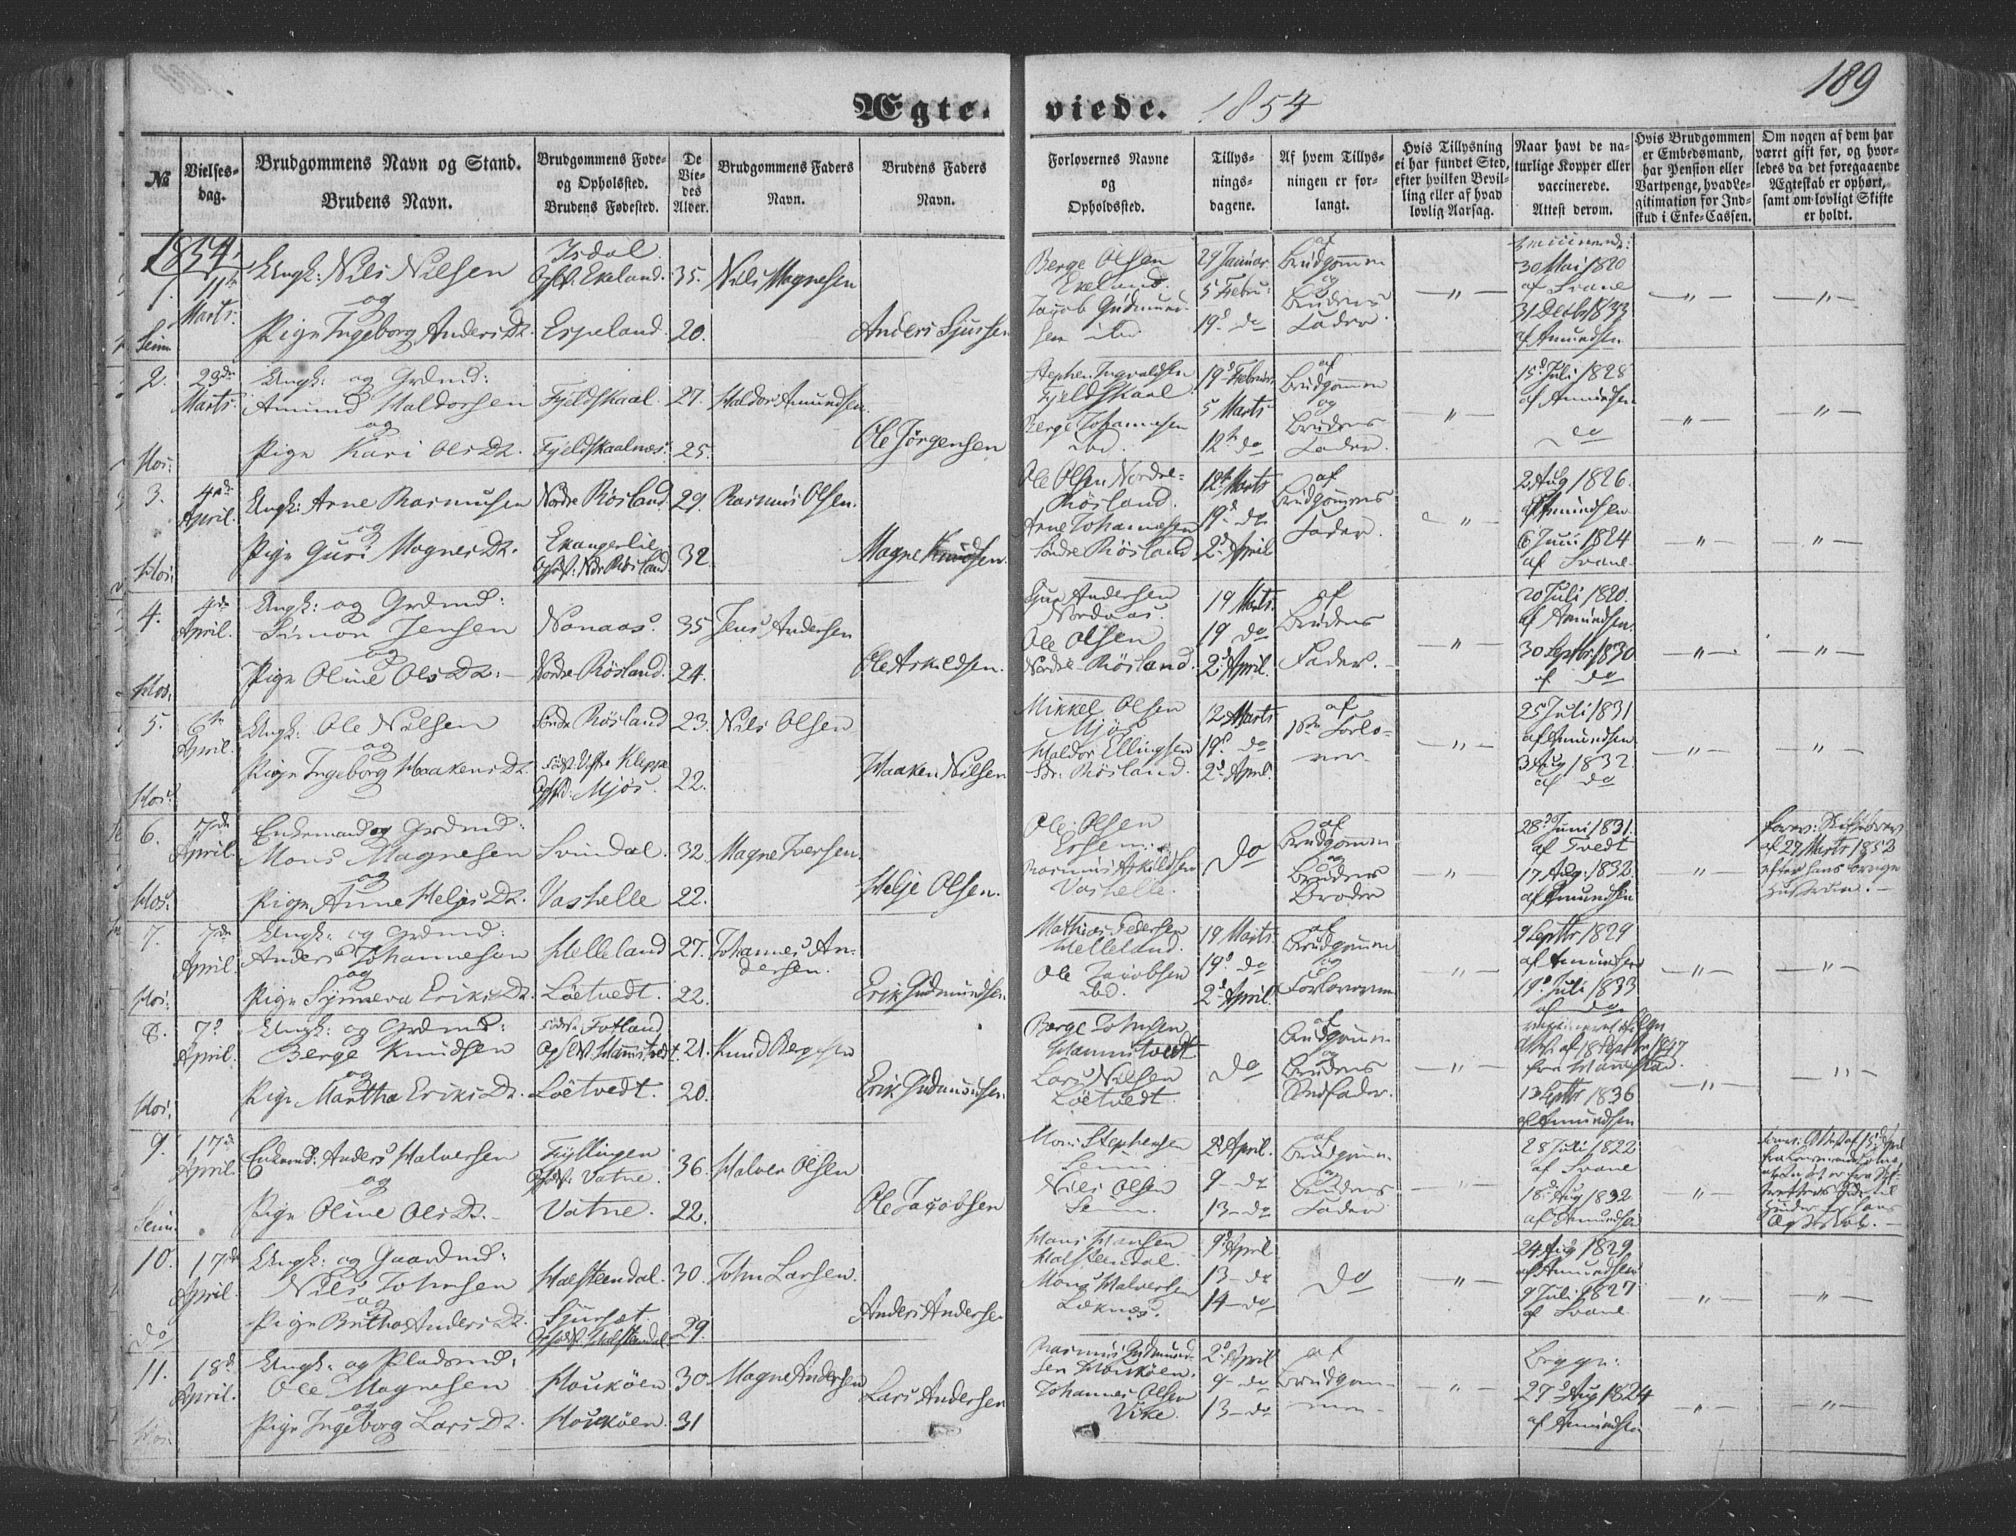 189
Ægte-
viede. 1854
No
Vielses-
dag.
Brudgommens Navn og Stand.
Brudens Navn.
Brudgommens Føde-
og Opholdssted.
Brudens Fødested.
De
Vie-
des
Alder.
Brudgommens Faders
Navn.
Brudens Faders
Navn.
Forlovernes Navne
og
Opholdssted.
Tillys-
nings-
dagene.
Af hvem Tillys-
ningen er for-
langt.
Hvis Tillysning
ei har fundet Sted,
efter hvilken Bevil-
ling eller af hvad
lovlig Aarsag.
Naar havt de na-
turlige Kopper eller
vaccinerede.
Attest derom.
Hvis Brudgommen
er Embedsmand,
har Pension eller
Vartpenge, hvad Le-
gitimation for Ind-
skud i Enke-Cassen.
Om nogen af dem har
været gift før, og hvor-
ledes da det foregaaende
Ægteskab er ophørt,
samt om lovligt Skifte
er holdt.
1854.
1. 11te Marts. Seim
Ungk: Nils Nilsen
og
Pige Ingeborg Anders Dr.
Isdal.
Opst. Ekeland.
Espeland.
35.
20.
Nils Magnesen
Anders Sjursen
Berge Olsen
Ekeland.
Jacob Gudmund-
sen ibd
29 Januar
5 Febru:
19de do
af
Brudgommen
og
Brudens
Fader.
30 Mai 1820
af Svane
31 Decbr 1833
af Amundsen
2. 23de Marts. Hos:
Ungk: og Grdmd:
Amund Haldorsen
og
Pige Kari Ols Dr.
Fjeldskaal.
Fjeldskaalnæs.
27.
25.
Haldor Amundsen.
Ole Jørgensen
Stephen Ingvaldsen
Fjeldskaal.
Berge Johannesen
ibd.
19de Februar
5 Marts
12te do
af
Brudgommen
og
Brudens
Fader.
15de Juli 1828
af Amundsen
do
3. 4de April. Hos:
Ungk: Arne Rasmusen
og
Pige Guri Magnes Dr.
Nordre Røsland
Ekangerlie
Opst: Ndr. Røsland
29.
32.
Rasmus Olsen.
Magne Knudsen.
Ole Olsen Nordre-
Røsland.
Arne Johannesen
Søndre Røsland
12te Marts
19de do
2de April
af
Brudgommens
Fader.
2 Aug 1826.
af Amundsen
6 Juni 1824
af Svane
4. 4de April. Hos:
Ungk: og Grdmd:
Simon Jensen
og
Pige Oline Ols Dr.
Nonaas.
Nordre Røsland.
35
24.
Jens Andersen
Ole Askeldsen.
Andersen
Nordnaas.
Ole Olsen
Nordre Røsland.
19 Marts
19 do
2 April.
af
Brudens
Fader.
20 Juli 1820.
af Amundsen.
30 Septbr. 1830
af do
5. 6te April. Hos:
Ungk: Ole Nilsen
og
Pige Ingeborg Haakens Dr.
Søndr Røsland
født: Vestre Kleppe
Opst: Mjøs.
23.
22.
Nils Olsen
Haaken Nilsen
Mikkel Olsen
Mjøs
Haldor Ellingsen
Sdr. Røsland.
12 Marts
19de do
2de April.
af
1ste Forlo-
ver.
25 Juli 1831
af Amundsen
3 Aug 1832.
af do
6. 7de April. Hos:
Enkemand og Grdmd:
Mons Magnesen
og
Pige Anne Heljes Dr.
Svindal.
Vashelle
32.
22.
Magne Iversen.
Helje Olsen.
Ole Olsen
Rasmus Askildsen
Vashelle.
do
af
Brudgommen
og
Brudens
Broder
28de Juni 1831.
af Tvedt
17 Aug. 1832.
af Amundsen
forev: Skiftebrev
af 27 Marts 1853
efter hans forrige
Hustrue.
7. 7de April. Hos:
Ungk: og Grdmd:
Anders Johannesen
og
Pige Synneva Eriks Dr.
Helleland
Løtvedt.
27.
22.
Johannes An-
dersen.
Erik Gudmundsen.
Mathias Pedersen
Helleland.
Ole Jacobsen
ibd.
19 Marts.
19de do
2de April
af
Brudgommen
og
Forloveren
9 Septbr 1829
af Amundsen
19de Juli 1833
af do
8. 7de April. Hos:
Ungk: og Grdmd:
Berge Knudsen
og
Pige Martha Eriks Dr.
født: Fotland
Opst: Hannistvedt.
Løtvedt.
21.
20.
Knud Bergesen
Erik Gudmundsen.
Berge Johnsen
Hannistvedt
Lars Nilsen
Løtvedt.
do
af
Brudgommen
og
Brudens
Stedfader.
Att. af 18 Septbr 1847
fra
13 Septbr 1836
af Amundsen
9. 17de April. Seim.
Enkemd: Anders Halversen
og
Pige Oline Ols Dr.
Fyllingen
Opst: Vatne.
Vatne.
36.
22.
Halver Olsen
Ole Jacobsen
Mons Stephensen
Seim
Nils Olsen
Seim.
2de April.
9 - do
13 - do
af
Brudgommen
og
Brudens
Fader
28 Juli 1822
af Svane
18de Aug 1832
af Amundsen
forev: Attest af 15de April
10. 17de April. do
Ungk: og Gaardmd:
Nils Johnsen
og
Pige Brithe Anders Dr.
Halsteendal.
Sjurset
Opst: Halsteendal
30.
29.
John Larsen.
Anders Andersen
Hans Hansen
Halsteendal.
Mons Halversen
Leknæs.
9de April
13 - do
14 - do
do
24 Aug 1829
af Amundsen
9 Juli 1827
af Svane
11. 18de April. Hos:
Ungk: og Pladsmd:
Ole Magnesen
og
Pige Ingeborg Lars Dr.
Houkøen
Houkøen.
30.
31
Magne Andersen
Lars Andersen
Rasmus Gudmund-
sen Houkøen.
Johannes Olsen
Vike.
2de April
9 - do
13 - do
af
Brudgom-
men
Begge:
27de Aug 1824
af Amundsen